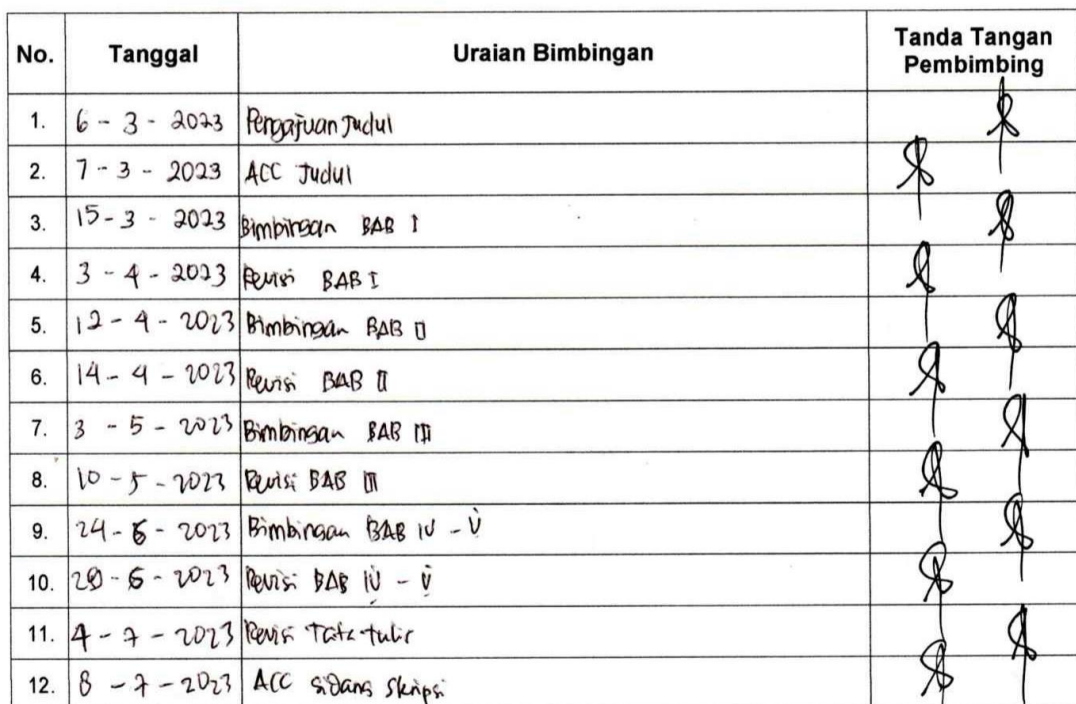 No. Tanggal Uraian Bimbingan Tanda Tangan Pembimbing
1. 6 - 3 - 2023 Pengajuan Judul
2. 7 - 3 - 2023 ACC Judul
3. 15 - 3 - 2023 Bimbingan BAB I
4. 3 - 4 - 2023 Revisi BAB I
5. 12 - 4 - 2023 Bimbingan BAB II
6. 14 - 4 - 2023 Revisi BAB II
7. 3 - 5 - 2023 Bimbingan BAB III
8. 10 - 5 - 2023 Revisi BAB III
9. 24 - 6 - 2023 Bimbingan BAB IV - V
10. - 6 - 2023 Revisi BAB IV - V
11. 4 - 7 - 2023 Revisi Tata tulis
12. 8 - 7 - 2023 ACC sidang skripsi